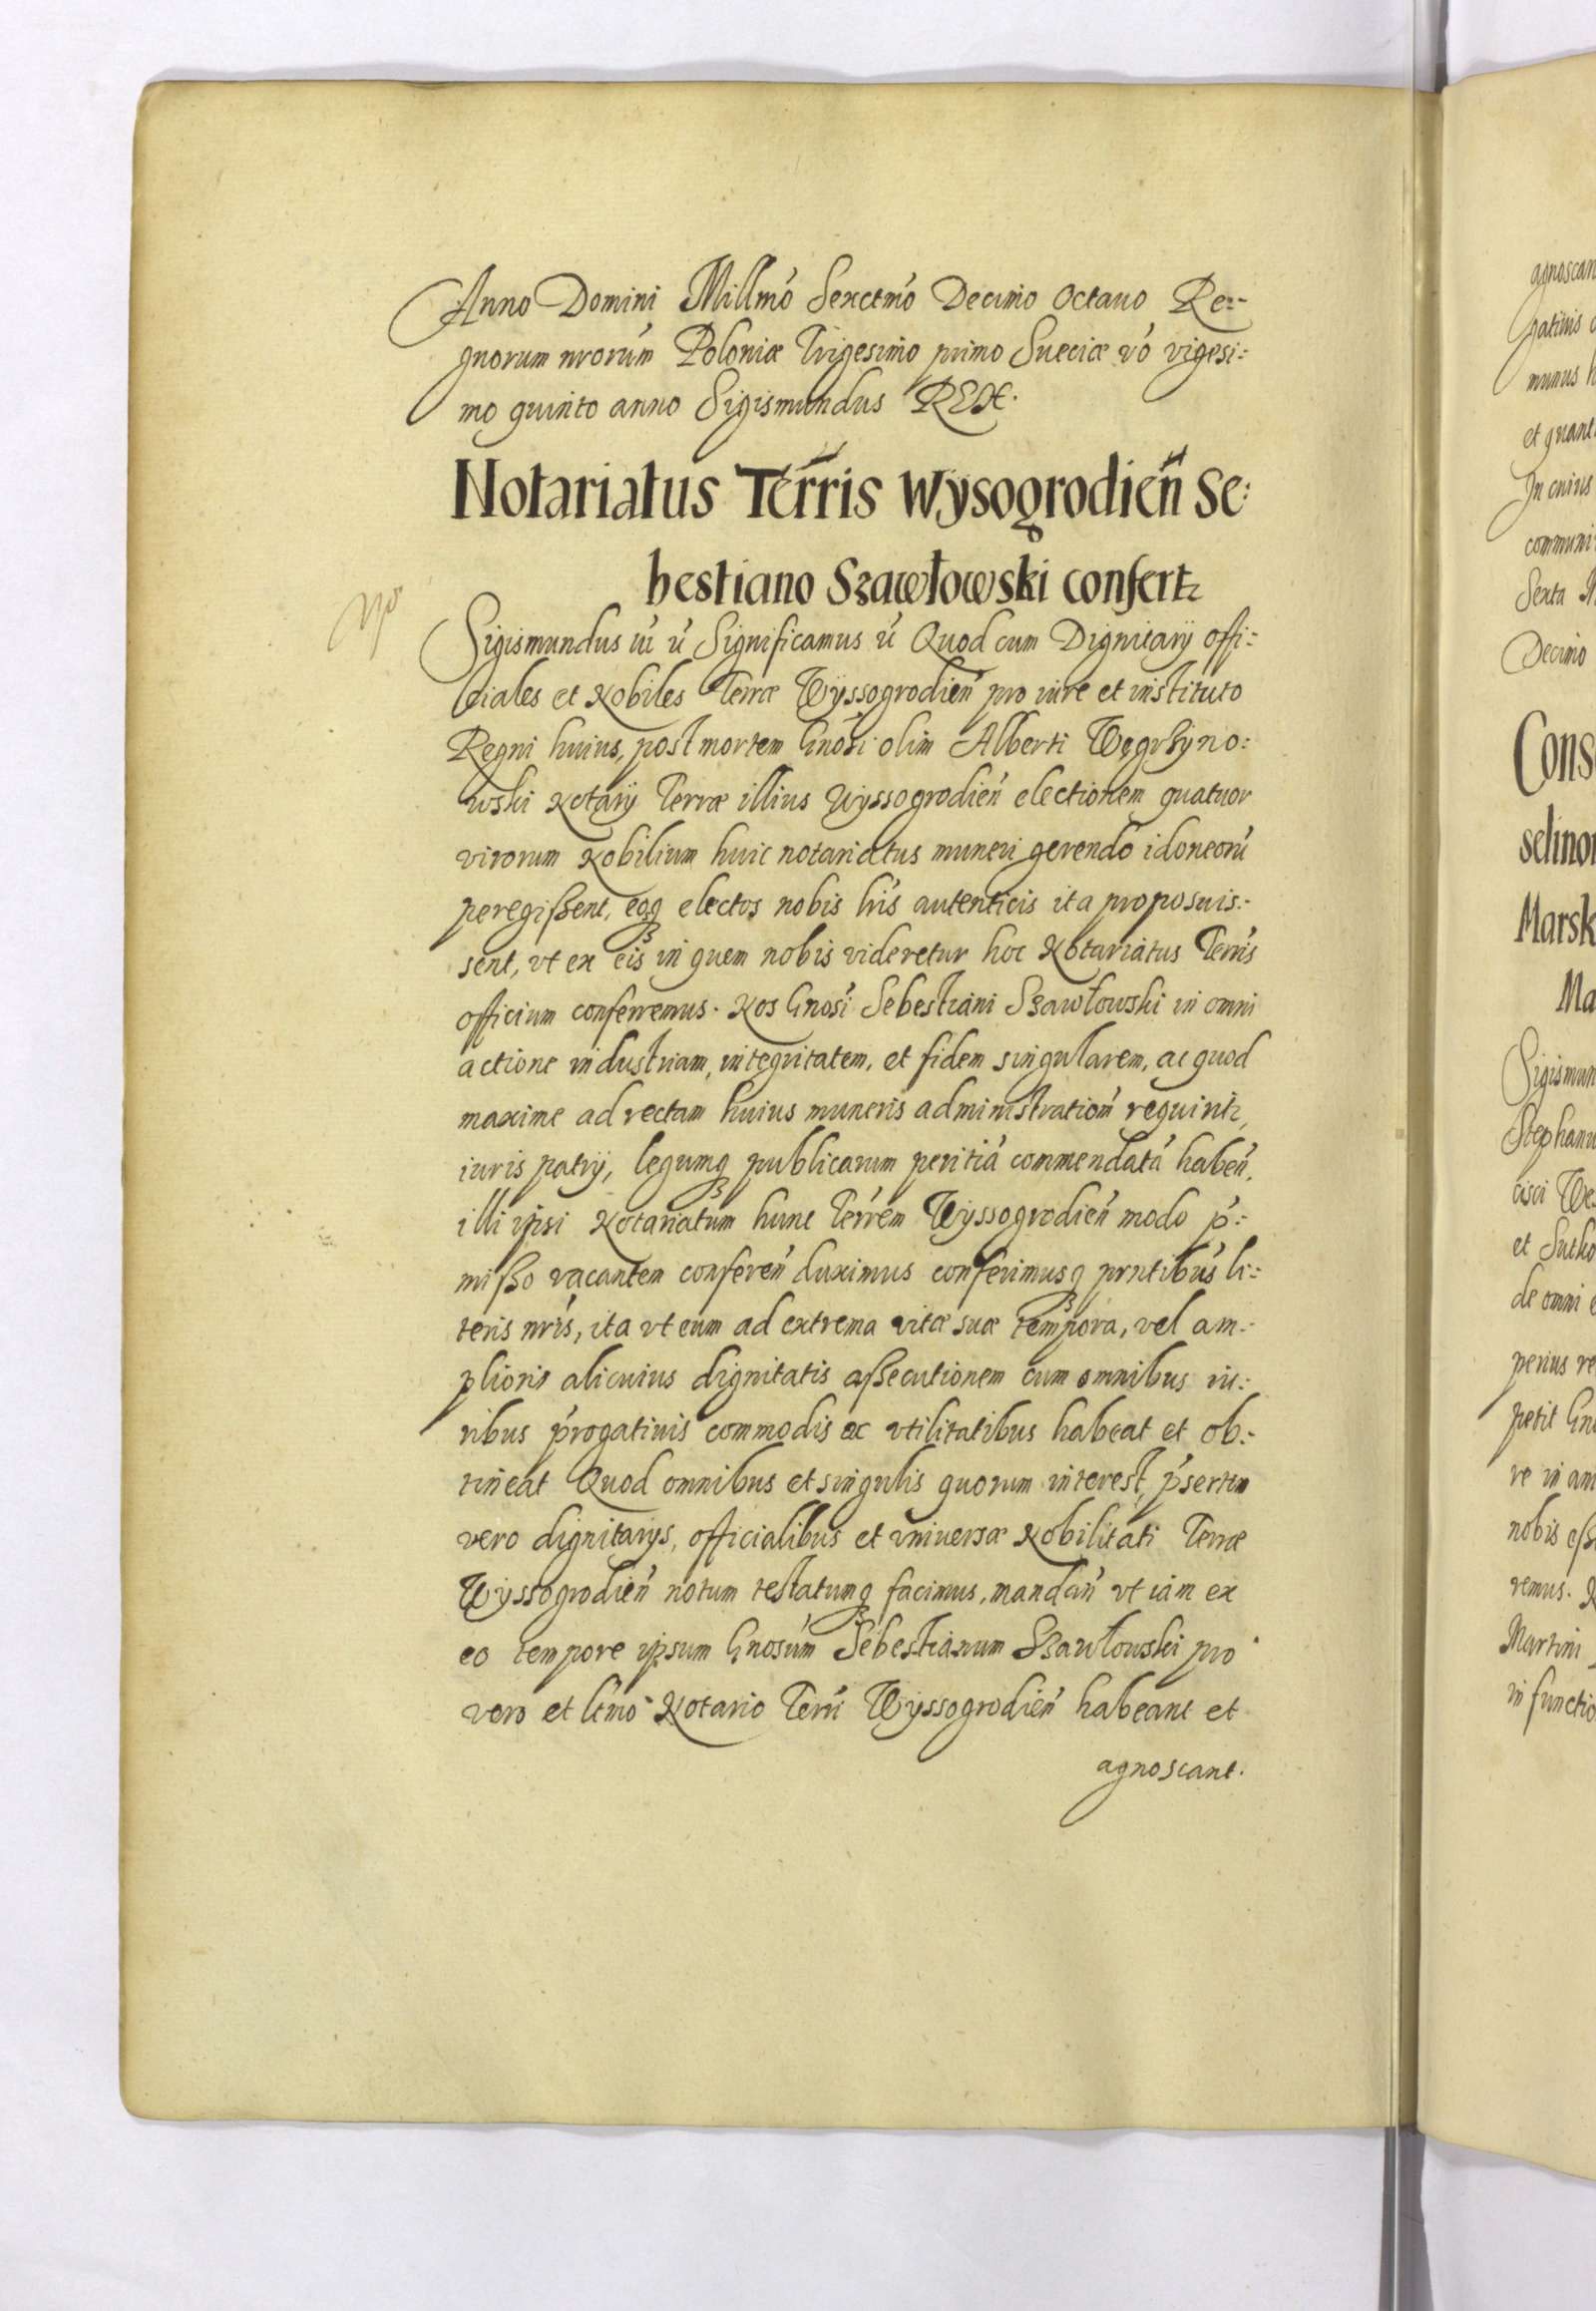 Anno Domini Millmo Sexctmo Decimo Octauo Re:-
gnorum nrorum Poloniæ Trigesimo primo Sueciæ vo vigesi:
mo quinto anno Sigismundus REX.
Notariatus Terris Wysogrodien Se:
bestiano Szawłowski confertz
Sigismundus iii ũ Significamus ũ Quod cum Dignitarÿ offi:
ciales et Nobiles Terræ Wÿssogrodien pro iure et instituto
Regni huius, post mortem Gnosi olim Alberti Węgrzyno:
wski Notarÿ Terræ illius Wÿssogrodien electionem quatuor
virorum Nobilium huic notariatus muneri gerendo idoneorũ
peregißent, eosq electos nobis lris autenticis ita proposuis:-
sent, vt ex eis in quem nobis videretur hoc Notariatus Terris
officium conferremus. Nos Gnosi Sebestiani Szawłowski in omni
actione industriam, integritatem, et fidem singularem, ac quod
maxime ad rectam huius muneris administration requiritz,
iuris patrÿ, legumq publicarum peritiã commendatã haben.
illi ipsi Notariatum hunc Terrem Wÿssogrodien modo p:-
mißo vacantem conferen duximus conferimusq prntibus li:-
teris nris, ita vt eum ad extrema vitæ suæ tempora, vel am:-
plioris alicuius dignitatis aßecutionem cum omnibus iu:-
ribus progatiuis commodis ac vtilitatibus habeat et ob:-
tineat Quod omnibus et singulis quorum interest, psertim
vero dignitarÿs, officialibus et vniuersæ Nobilitati Terræ
Wÿssogrodien notum testatumq facimus, mandan vt iam ex
eo tempore ipsum Gnosum Sebestianum Szawłowski pro
vero et ltmo Notario Terri Wÿssogrodien habeant et
agnoscant.
agnoscan
gatiuis
munus
et quant
In cuius
communi
Sexta
Decimo
Cons
selino
Marsk
Ma
Sigismun
Stephanu
cisci We
et Sutko
de omni
perius re
petit Gn
re in am
nobis eß
remus.
Martini
in functio